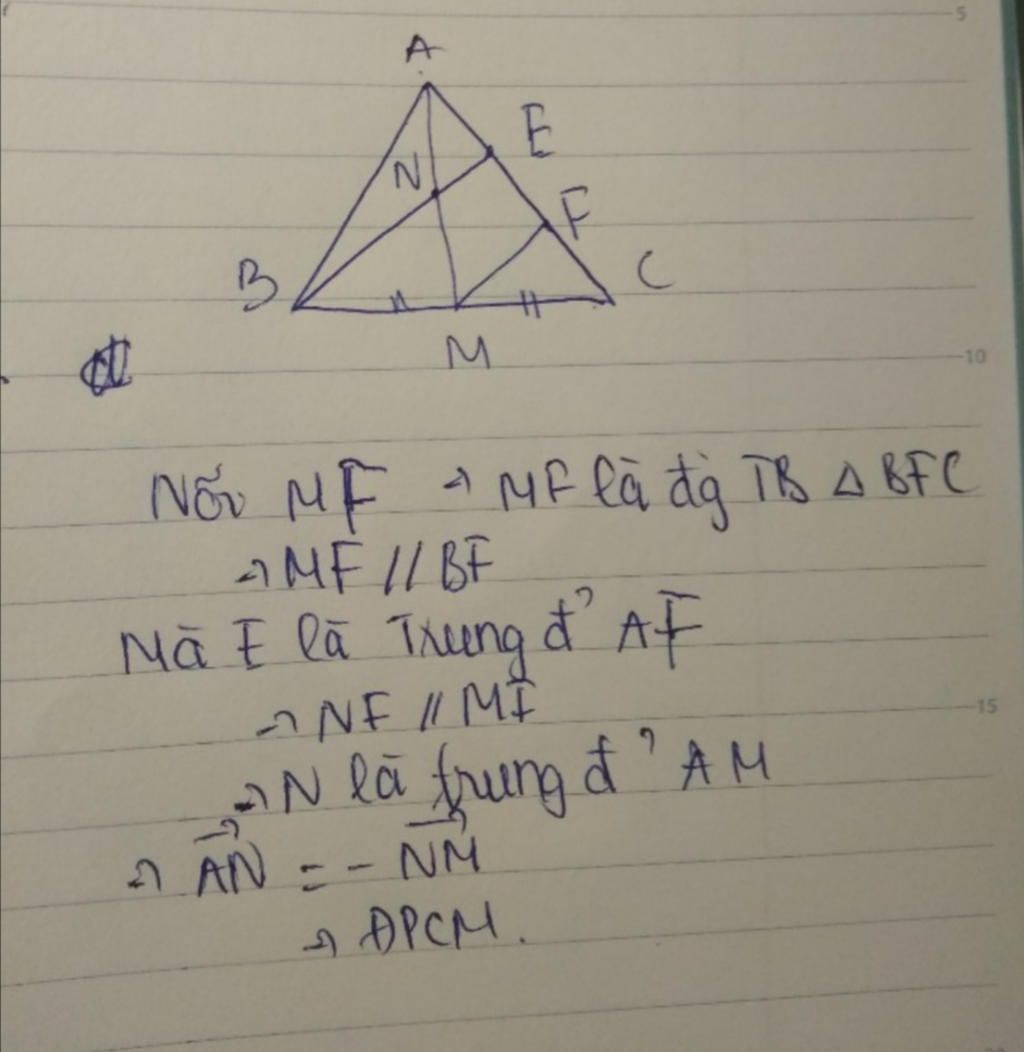 5
A
E
N
F
B
C
M
10
Nối MF → MF là đg TB △ BFC
→ MF // BF
Mà E là Trung đ' AF
→ NF // MF
15
→ N là trung đ' AM
→ AN = - NM
→ ĐPCM.